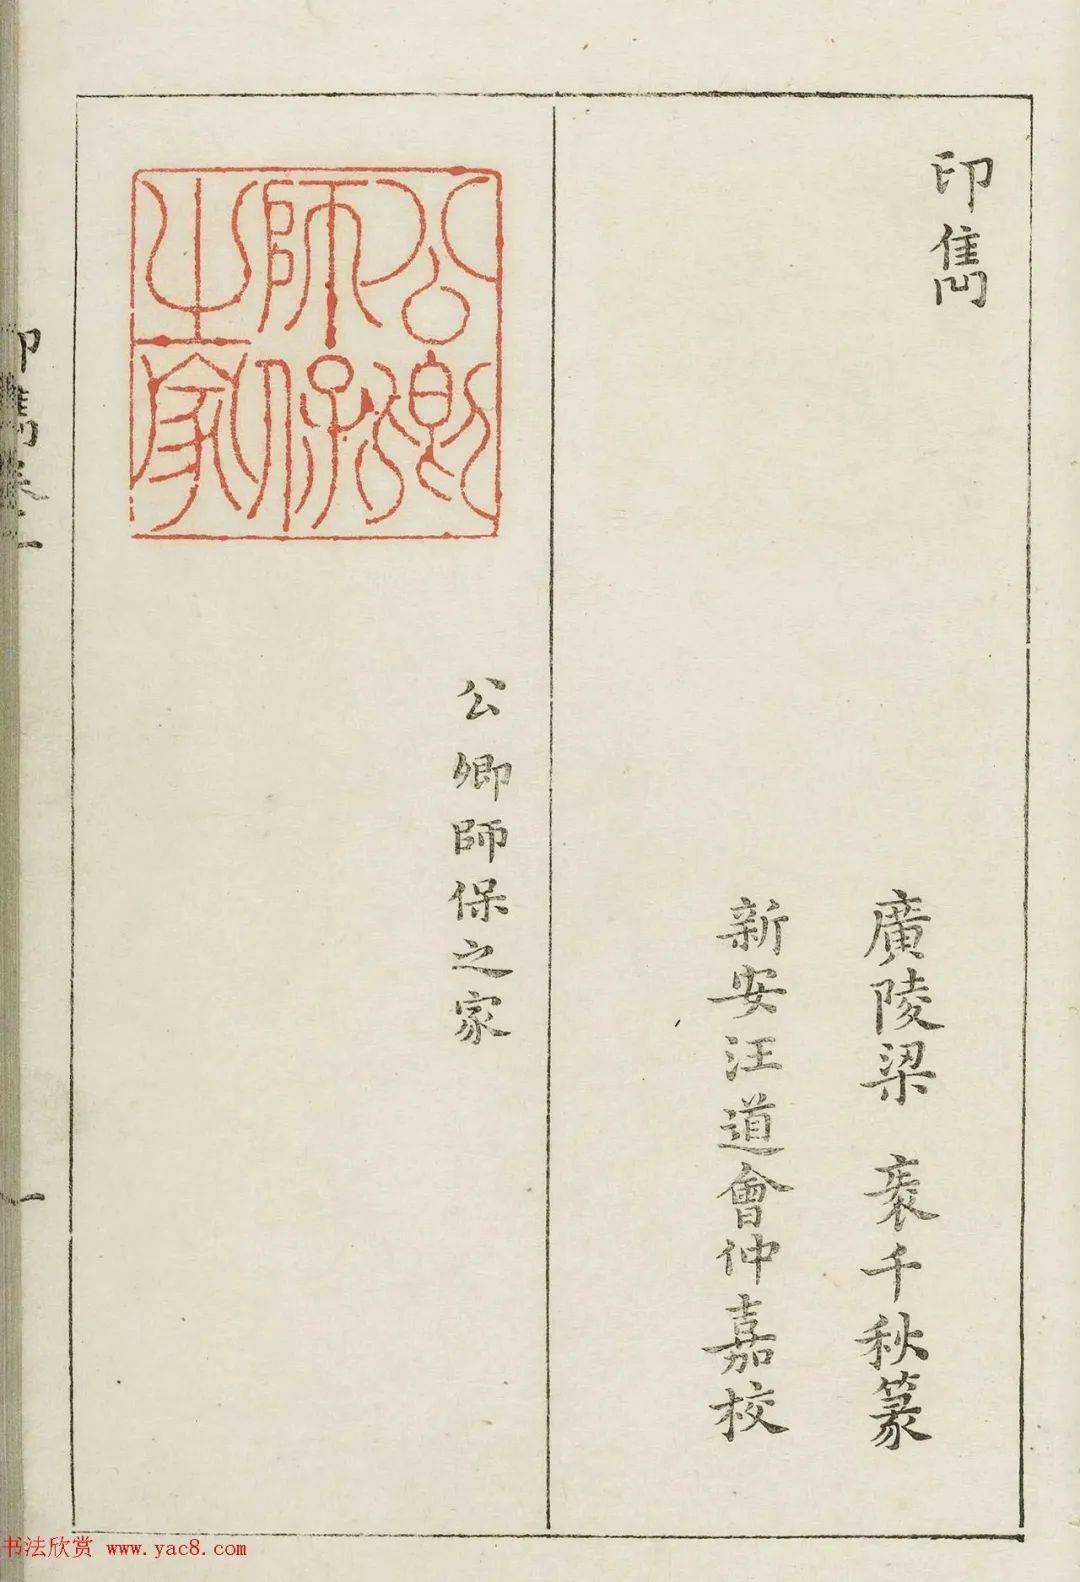 印雋
廣陵梁 袠千秋篆
新安汪道會仲嘉校
公卿師保之家
公卿師保之家
印雋卷一
一
书法欣赏 www.yac8.com